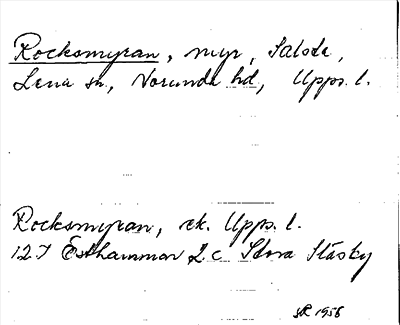 Rocksmyran, myr, Salsta,
Lena sn, Norunda hd, Upps. l.
Rocksmyran, ek. Upps. l.
12 I Östhammar 2 c Stora Stäsby
SR 1956